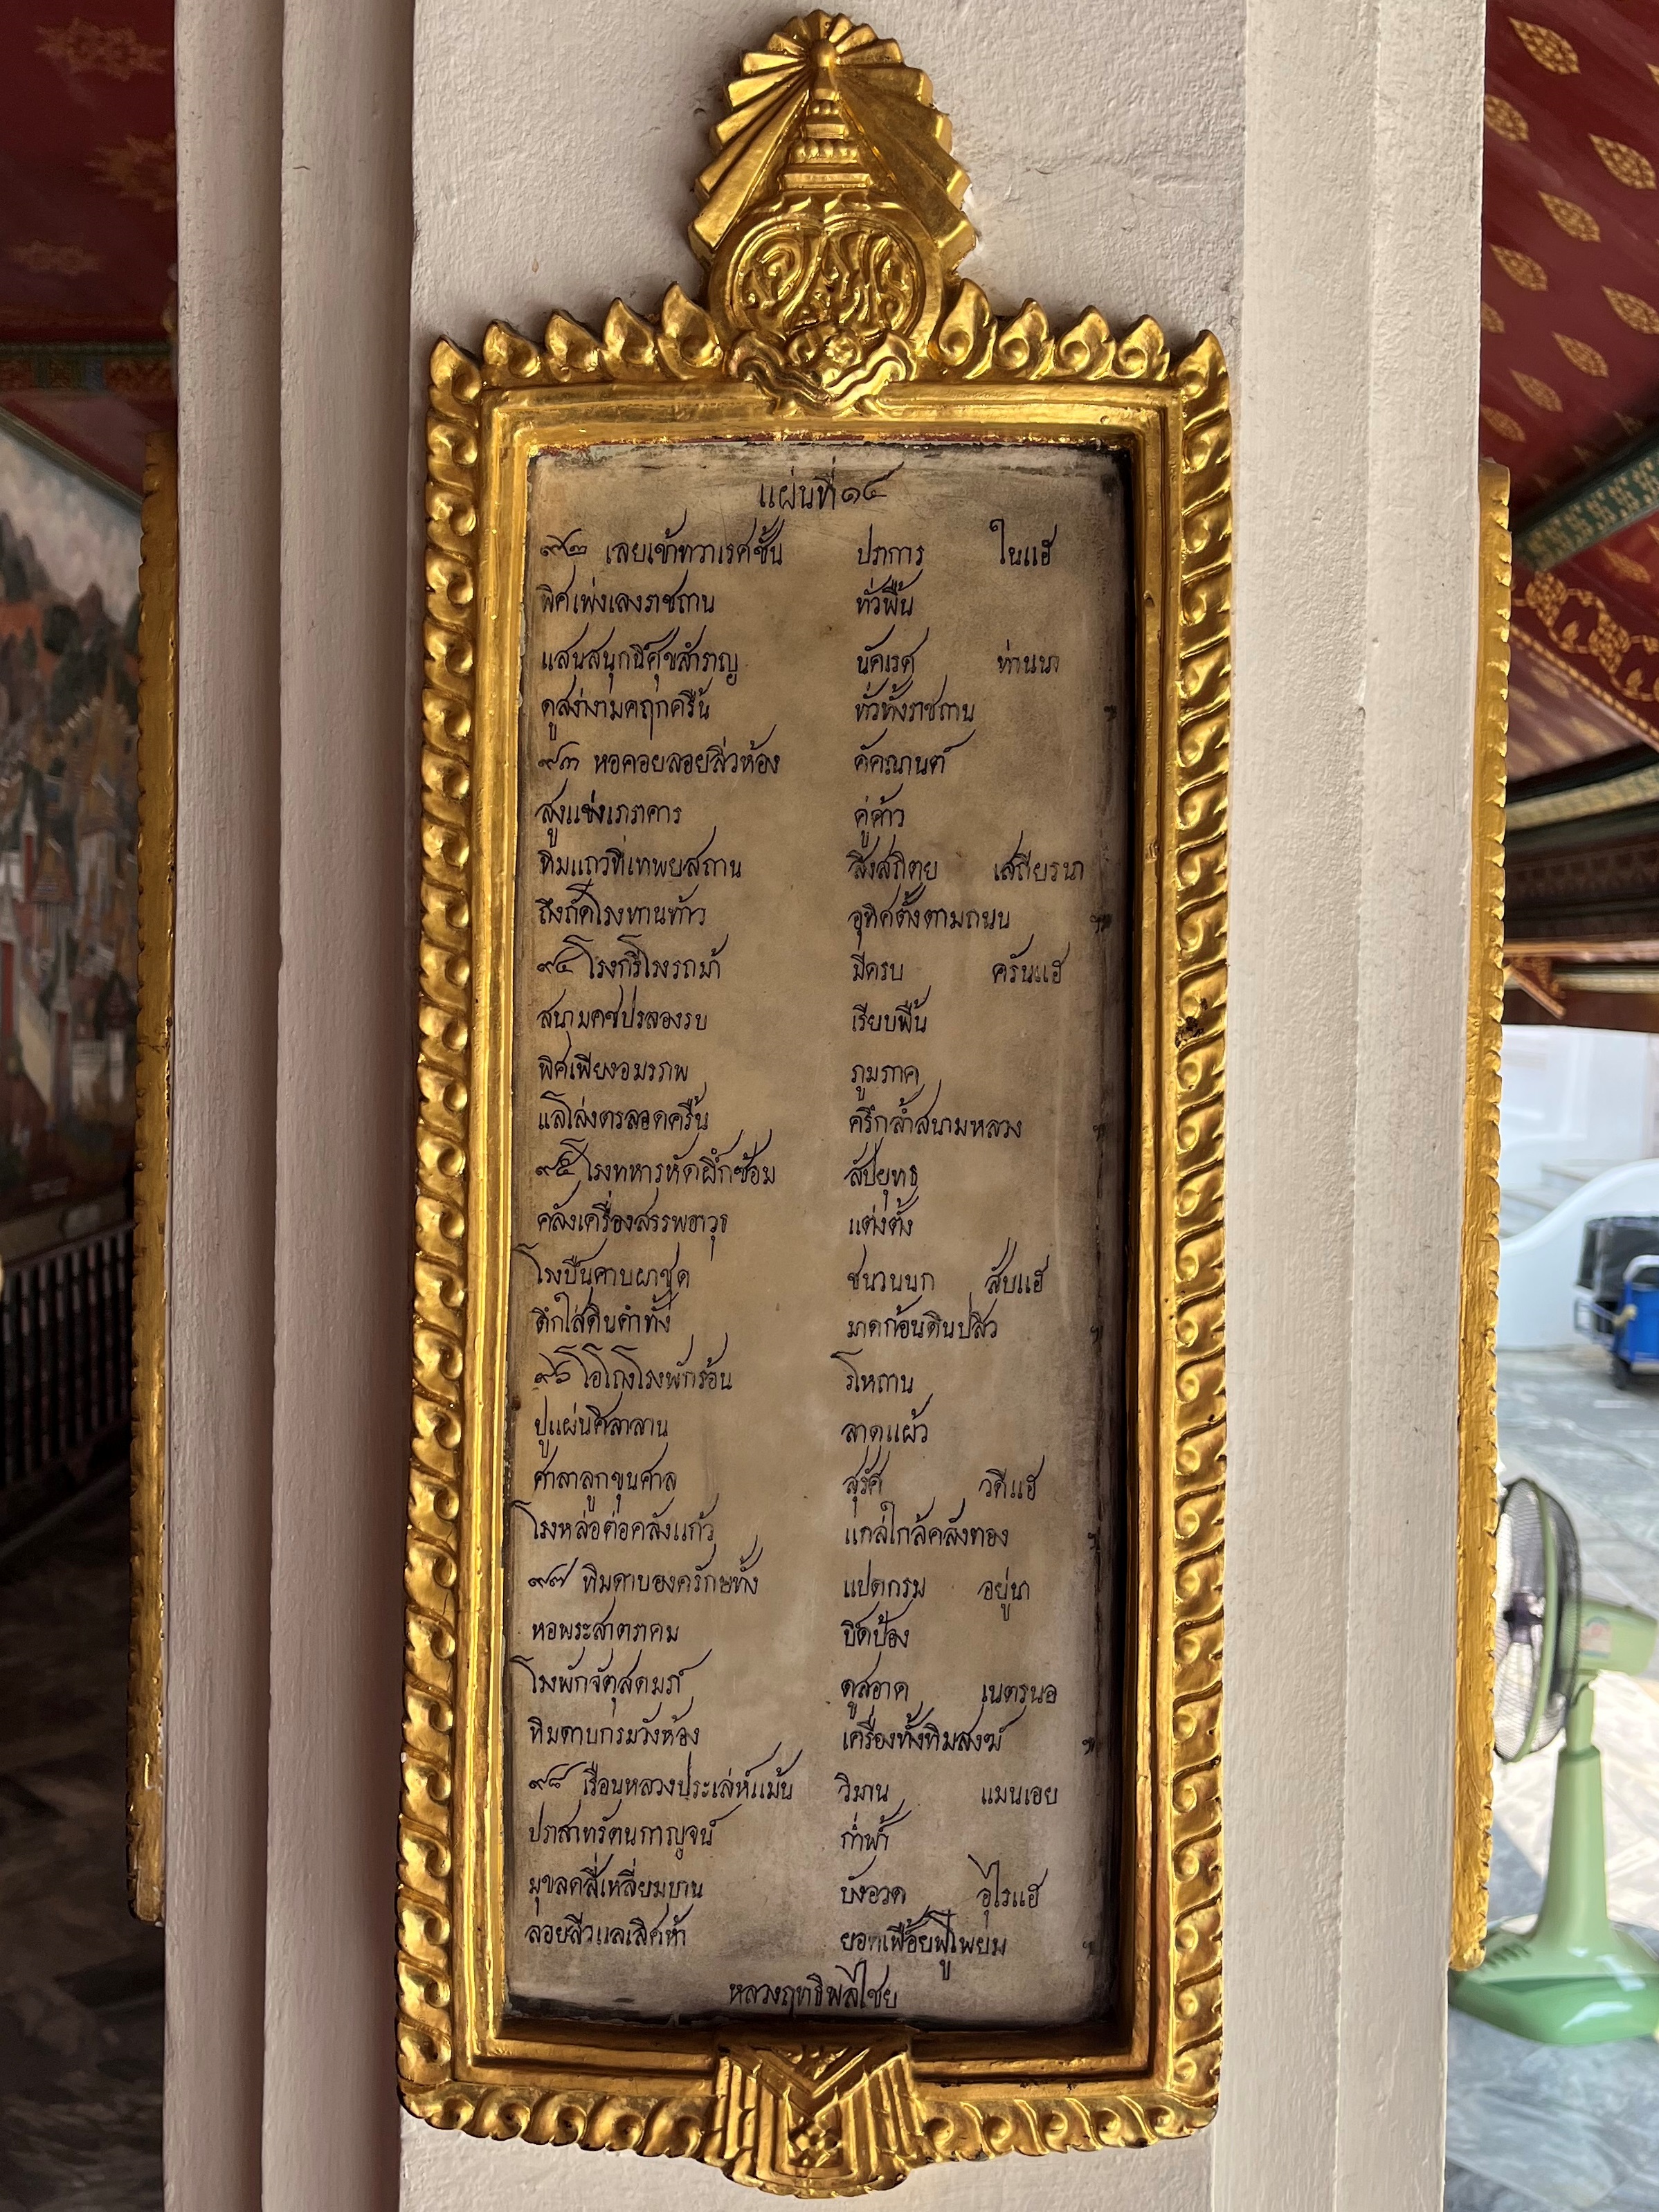 แผ่นที่ ๑๔
๙๒ เลยเข้าทวาเรศชั้น ปราการ ในแฮ
พิศเพ่งเลงราชถาน ทั่วพื้น
แสนสนุกนิศุขสำราญ นัคเรศ ท่านนา
ดูสง่างามคฤกครื้น ทั่วทั้งราชถาน
๙๓ หอคอยลอยลิ่วห้อง คัคณานต์
สูงแข่งเภตาคาร คู่ค้าว
ทิมแถวที่เทพยสถาน สิงสถิตย เสถียรนา
ถึงถัดโรงทานท้าว อุทิศตั้งตามถนน
๙๔ โรงกรีโรงรถม้า มีครบ ครันแฮ
สนามคชปรลองรบ เรียบพื้น
พิศเพียงอมรภพ ภูมภาค
แลโล่งตรลอดครื้น ครึกล้ำสนามหลวง
๙๕ โรงทหารหัดฝึกซ้อม สัปยุทธ
คลังเครื่องสรรพอาวุธ แต่งตั้ง
โรงปืนคาบผาชุด ชนวนนก สับแฮ
ตึกใส่ดินดำทั้ง มาดก้อนดินปสิว
๙๖ โอ่โถงโรงพักร้อน รโหถาน
ปูแผ่นศิลาลาน ลาดแผ้ว
ศาลาลูกขุนศาล สุรัศ วดีแฮ
โรงหล่อต่อคลังแก้ว แกล่ใกล้คลังทอง
๙๗ ทิมดาบองครักษทั้ง แปดกรม อยู่นา
หอพระสาตราคม ปิดป้อง
โรงพักจัตุสดมภ์ ดูสอาด เนตรนอ
ทิมดาบกรมวังห้อง เครื่องทั้งทิมสงฆ์
๙๘ เรือนหลวงประเล่ห์แม้น วิมาน แมนเอย
ปราสาทรัตนกาญจน์ ก่ำฟ้า
มุขลดสี่เหลี่ยมบาน บังอวด อุไรแฮ
ลอยลิ่วแลเลิศห้า ยอดเฟื้อยฟูโพยม
หลวงฤทธิพลไชย